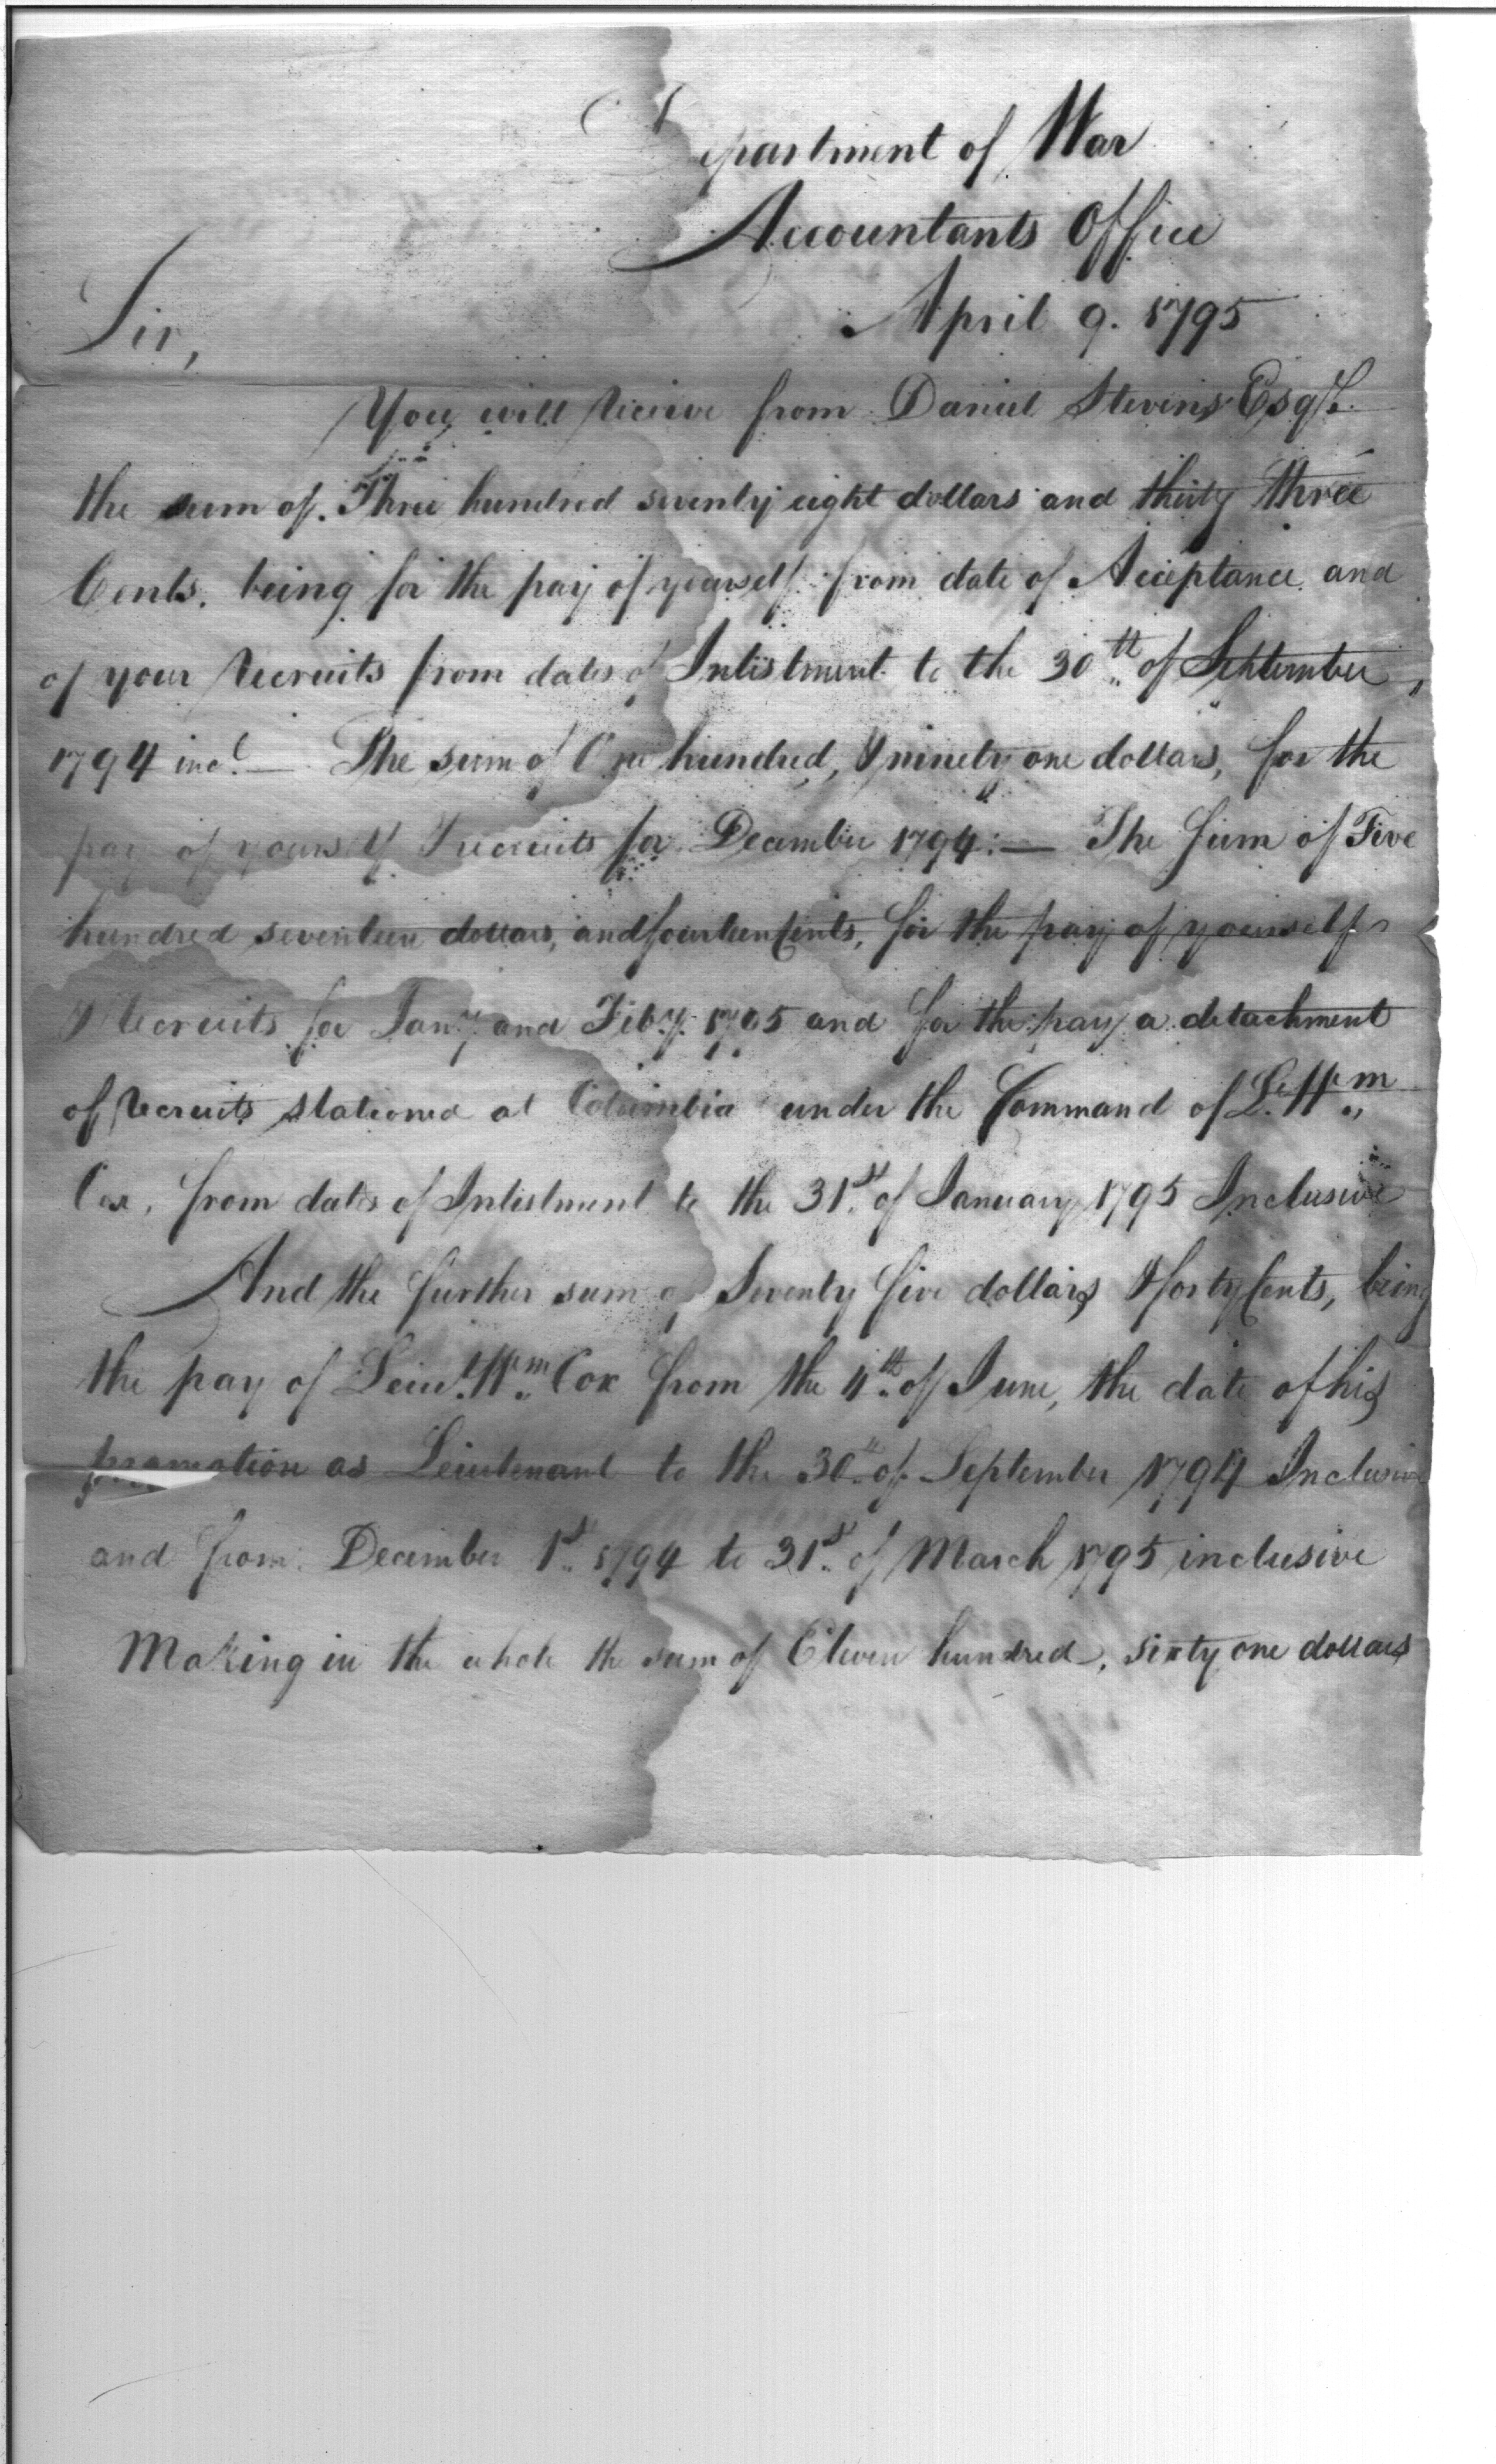 Department of War
Accountants Office
April 9. 1795
Sir,
You will receive from Daniel Stevens Esqr.
the sum of. Three hundred seventy eight dollars and thirty three
Cents. being for the pay of yourself from date of Acceptance and
of your recruits from dates of Inlistment to the 30th of September,
1794 incl. — The sum of One hundred, & ninety one dollars, for the
pay of yourself & recruits for December 1794:— The sum of Five
hundred seventeen dollars, and fourteen Cents, for the pay of yourself
& recruits for Jany. and Feby. 1795 and for the pay a detachment
of recruits stationed at Columbia under the Command of Lt. Wm.
Cox, from dates of Inlistment to the 31st of January 1795 Inclusive
And the further sum of Seventy five dollars & forty Cents, being
the pay of Leiut. Wm. Cox from the 4th of June, the date of his
promotion as Leiutenant to the 30th of September 1794 Inclusive
and from December 1st 1794 to 31st of March 1795 inclusive
Making in the whole the sum of Eleven hundred, sixty one dollars